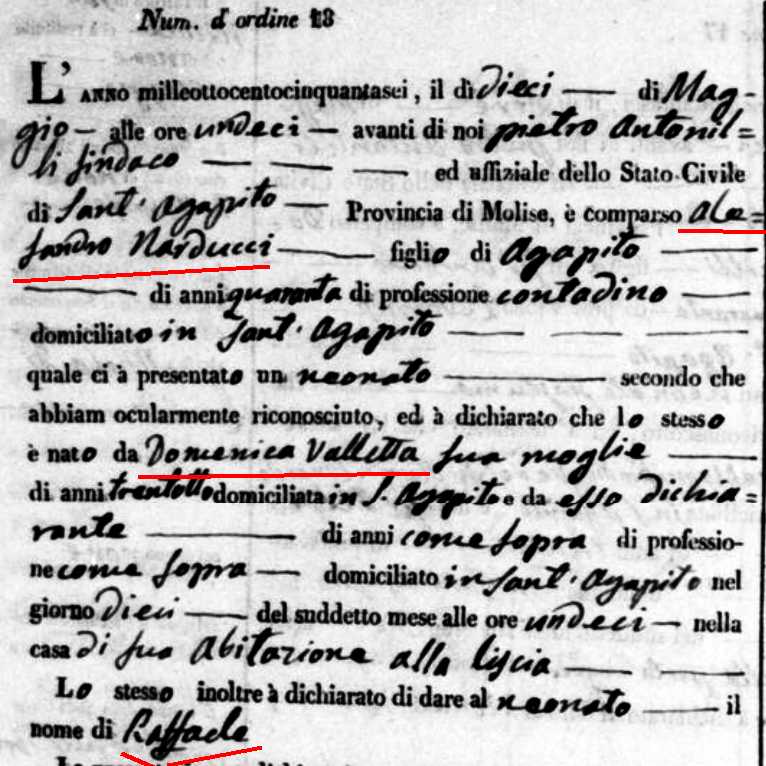 Num. d'ordine 18
L'ANNO milleottocentocinquantasei, il dì dieci — di Mag-
gio — alle ore undeci — avanti di noi pietro Antonil=
li sindaco — — — ed uffiziale dello Stato Civile
di Sant' Agapito — Provincia di Molise, è comparso Ale=
sandro Narducci — figlio di Agapito —
— di anni quaranta di professione contadino —
domiciliato in Sant' Agapito — — —
quale ci à presentato un neonato — secondo che
abbiam ocularmente riconosciuto, ed à dichiarato che lo stesso
è nato da Domenica Valletta sua moglie —
di anni trentotto domiciliata in S. Agapito e da esso dichia=
rante — di anni come sopra di professio-
ne come sopra — domiciliato in Sant' Agapito nel
giorno dieci — del suddetto mese alle ore undeci — nella
casa di sua abitazione alla liscia — —
Lo stesso inoltre à dichiarato di dare al neonato — il
nome di Raffaele